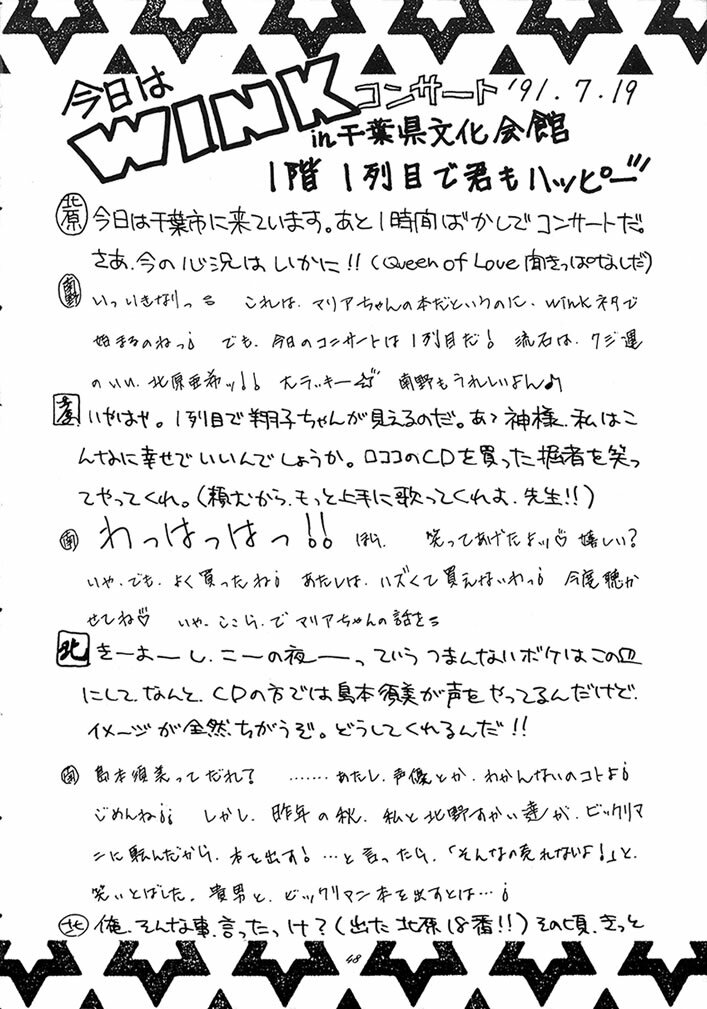 今日は WINK コンサート '91.7.19
in 千葉県文化会館
1階1列目で君もハッピー
北原 今日は千葉市に来ています。あと1時間ばかしでコンサートだ。
さあ、今の心況はいかに!!(Queen of Love 聞きっぱなしだ)
南野 いっいきなりっ これは、マリアちゃんの本だというのに、winkネタで
始まるのねっ でも、今日のコンサートは1列目だ! 流石は、クジ運
のいい、北原亜希ッ!! 大ラッキー☆ 南野もうれしいよん♪
いやはや。1列目で翔子ちゃんが見えるのだ。あゝ神様、私はこ
んなに幸せでいいんでしょうか。ロココのCDを買った 者を笑っ
てやってくれ。(頼むから、もっと上手に歌ってくれよ、先生!!)
南 わっはっはっ!! ほら、 笑ってあげたよッ♡ 嬉しい?
いや、でも、よく買ったね! あたしは、ハズくて買えないわっ! 今度聴か
せてね♡ いや、ここら、で マリアちゃんの話を
北 きーよーし、こーの夜ーーっていう つまんないボケはこの皿
にして、なんと、CDの方では島本須美が声をやってるんだけど、
イメージが全然ちがうぞ。どうしてくれるんだ!!
南 島本須美ってだれ? ……あたし、声優とか、わかんないのコトよ!
ごめんね!! しかし、昨年の秋、私と北野すかい達が、ビックリマ
ンに転んだから、本を出す!…と言ったら、「そんなの売れないよ!」と、
笑いとばした、貴男と、ビックリマン本を出すとは…!
北 俺、そんな事、言ったっけ?(出た北原18番!!)その頃、きっと
48